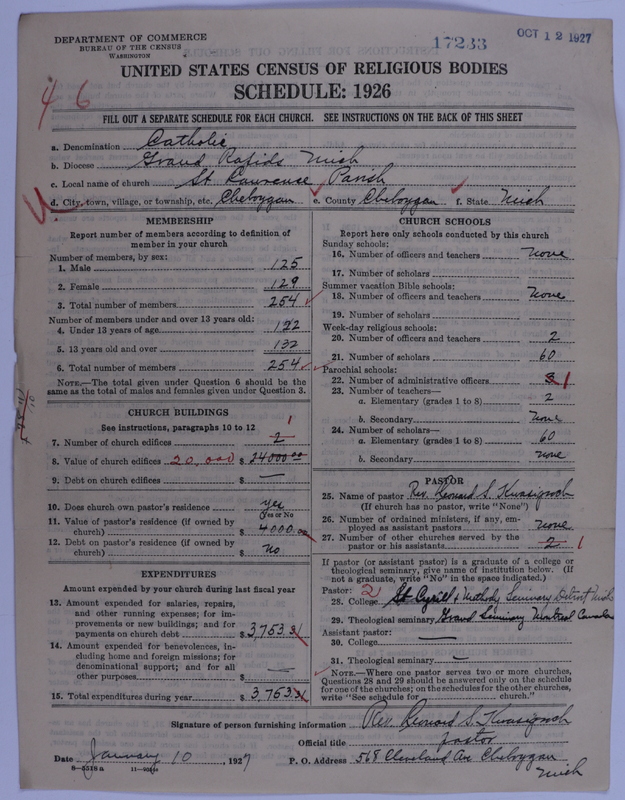 DEPARTMENT OF COMMERCE
BUREAU OF THE CENSUS
WASHINGTON
17233
OCT 12 1927
UNITED STATES CENSUS OF RELIGIOUS BODIES
SCHEDULE: 1926
46
FILL OUT A SEPARATE SCHEDULE FOR EACH CHURCH. SEE INSTRUCTIONS ON THE BACK OF THIS SHEET
a. Denomination Catholic
b. Diocese Grand Rapids Mich
c. Local name of church St Laurense Parish
d. City, town, village, or township, etc. Cheboygan e. County Cheboygan f. State Mich
MEMBERSHIP
Report number of members according to definition of member in your church
Number of members, by sex:
1. Male 125
2. Female 129
3. Total number of members 254
Number of members under and over 13 years old:
4. Under 13 years of age 122
5. 13 years old and over 132
6. Total number of members 254
NOTE.—The total given under Question 6 should be the
same as the total of males and females given under Question 3.
CHURCH BUILDINGS
See instructions, paragraphs 10 to 12
7. Number of church edifices 2 1
8. Value of church edifices 20,000 $ 24000.00
9. Debt on church edifices $ —
10. Does church own pastor's residence yes
Yes or No
11. Value of pastor's residence (if owned by
church) $ 4000.00
12. Debt on pastor's residence (if owned by
church) $ No
EXPENDITURES
Amount expended by your church during last fiscal year
13. Amount expended for salaries, repairs,
and other running expenses; for im-
provements or new buildings; and for
payments on church debt $ 3,753.31
14. Amount expended for benevolences, in-
cluding home and foreign missions; for
denominational support; and for all
other purposes $ —
15. Total expenditures during year $ 3,753.31
CHURCH SCHOOLS
Report here only schools conducted by this church
Sunday schools:
16. Number of officers and teachers none
17. Number of scholars
Summer vacation Bible schools:
18. Number of officers and teachers none
19. Number of scholars
Week-day religious schools:
20. Number of officers and teachers 2
21. Number of scholars 60
Parochial schools:
22. Number of administrative officers 3 1
23. Number of teachers—
a. Elementary (grades 1 to 8) 2
b. Secondary none
24. Number of scholars—
a. Elementary (grades 1 to 8) 60
b. Secondary none
PASTOR
25. Name of pastor Rev. Leonard S. Kwasigroch
(If church has no pastor, write "None")
26. Number of ordained ministers, if any, em-
ployed as assistant pastors none
27. Number of other churches served by the
pastor or his assistants 2 1
If pastor (or assistant pastor) is a graduate of a college or
theological seminary, give name of institution below. (If
not a graduate, write "No" in the space indicated.)
Pastor: 2
28. College St Cyrill & Methody Seminary Detroit Mich
29. Theological seminary Grand Seminary Montreal Canada
Assistant pastor:
30. College —
31. Theological seminary —
NOTE.—Where one pastor serves two or more churches,
Questions 28 and 29 should be answered only on the schedule
for one of the churches; on the schedules for the other churches,
write "See schedule for church."
Signature of person furnishing information Rev. Leonard S. Kwasigroch
Official title pastor
Date January 10, 1927 P. O. Address 568 Cleveland Av. Cheboygan
Mich
8—5518 a